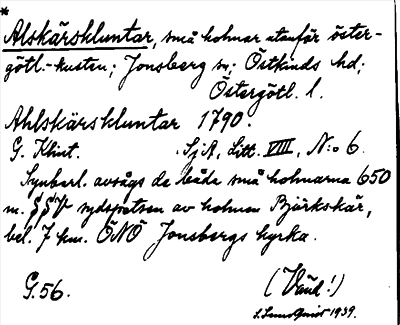 *
Alskärskluntar, små holmar utanför öster-
götl.-kusten; Jonsberg sn; Östkinds hd;
Östergötl. l.
Ahlskärskluntar 1790.
G. Klint. SjA, Litt. VIII, N:o 6.
Synbarl. avsågs de båda små holmarna 650
m. SSV sydspetsen av holmen Björkskär,
bel. 7 km. ÖNÖ Jonsbergs kyrka.
G. 56. (Vad!)
1939.